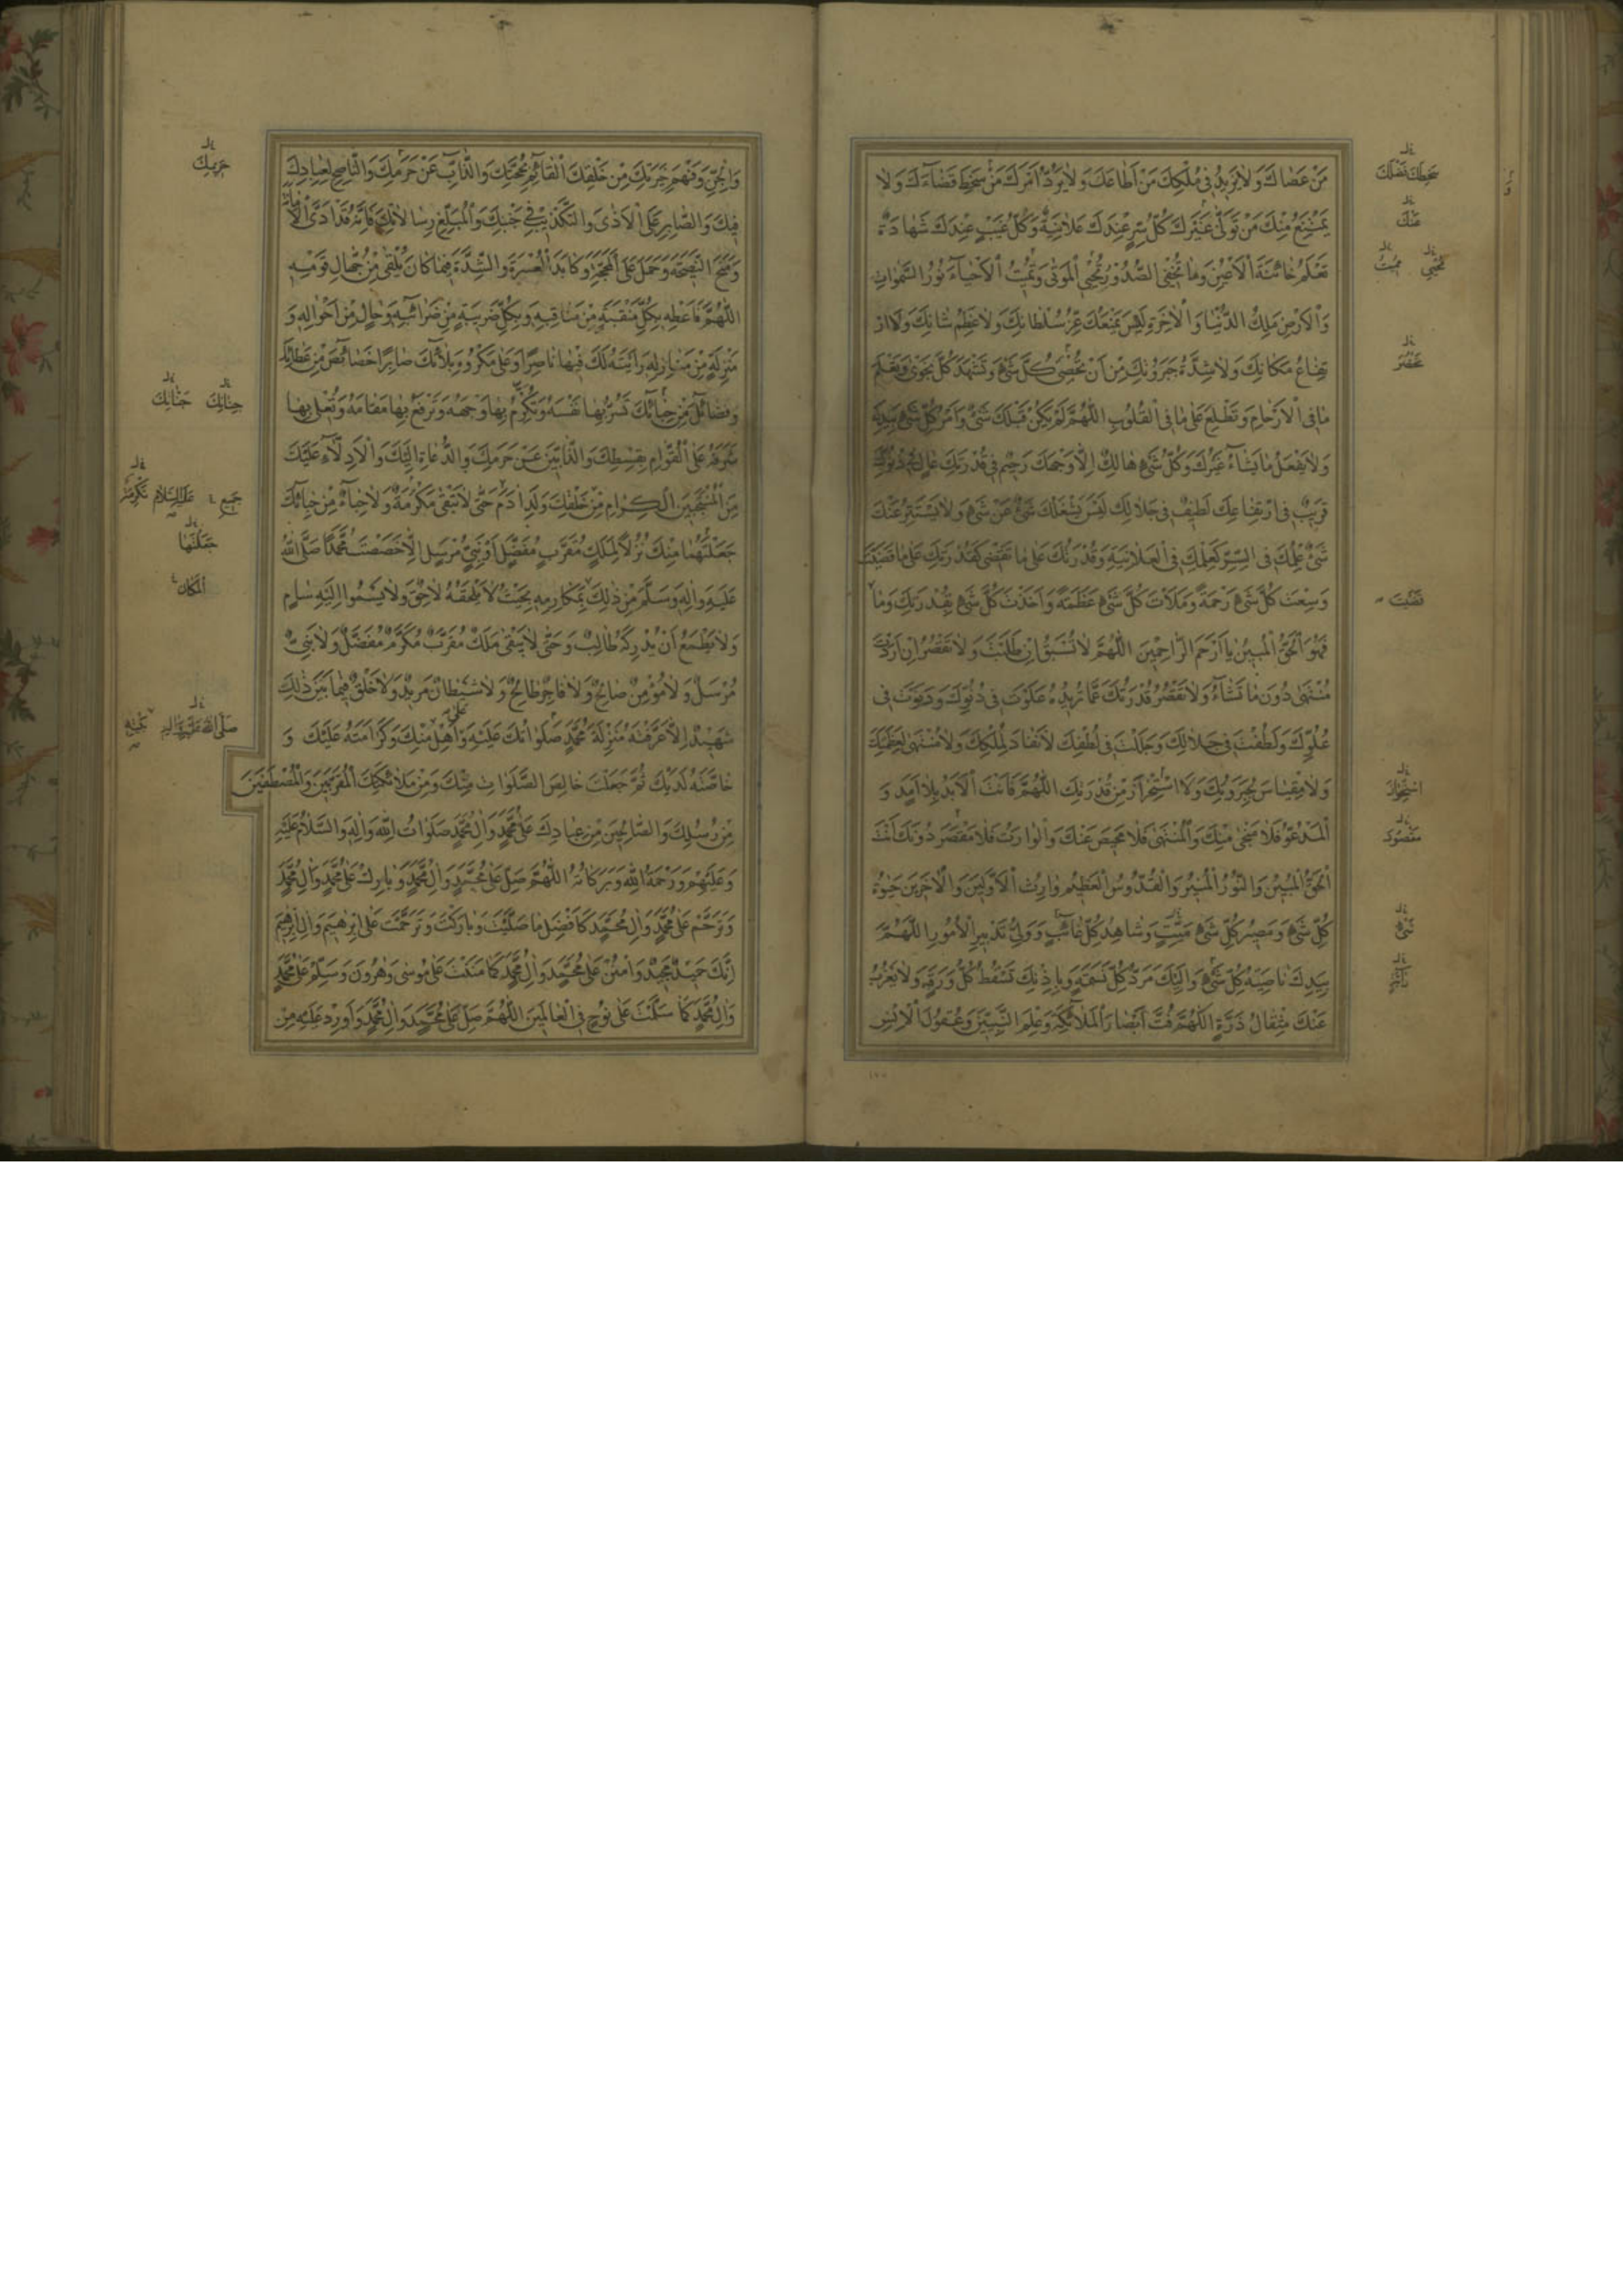 مَنْ عَصَاكَ وَلَا يَزِيدُ فِي مُلْكِكَ مَنْ أَطَاعَكَ وَلَا يَرُدُّ أَمْرَكَ مَنْ سَخِطَ قَضَاءَكَ وَلَا
يَمْتَنِعُ مِنْكَ مَنْ تَوَلَّى غَيْرَكَ كُلُّ سِرٍّ عِنْدَكَ عَلَانِيَةٌ وَكُلُّ غَيْبٍ عِنْدَكَ شَهَادَةٌ
تَعْلَمُ خَائِنَةَ الْأَعْيُنِ وَمَا تُخْفِي الصُّدُورُ تُحْيِي الْمَوْتَى وَتُمِيتُ الْأَحْيَاءَ نُورُ السَّمَوَاتِ
وَالْأَرْضِ مَلِكُ الدُّنْيَا وَالْآخِرَةِ لَيْسَ يَمْنَعُكَ عِزُّ سُلْطَانِكَ وَلَا عِظَمُ شَأْنِكَ وَلَا ارْ
تِفَاعُ مَكَانِكَ وَلَا شِدَّةُ جَبَرُوتِكَ مِنْ أَنْ تُحْصِيَ كُلَّ شَيْءٍ وَتَشْهَدَ كُلَّ نَجْوَى وَتَعْلَمَ
مَا فِي الْأَرْحَامِ وَتَطَّلِعَ عَلَى مَا فِي الْقُلُوبِ اللَّهُمَّ لَمْ يَكُنْ قَبْلَكَ شَيْءٌ وَأَمْرُ كُلِّ شَيْءٍ بِيَدِكَ
وَلَا يَفْعَلُ مَا يَشَاءُ غَيْرُكَ وَكُلُّ شَيْءٍ هَالِكٌ إِلَّا وَجْهَكَ رَحِيمٌ فِي قُدْرَتِكَ عَالٍ فِي دُنُوِّكَ
قَرِيبٌ فِي ارْتِفَاعِكَ لَطِيفٌ فِي جَلَالِكَ لَيْسَ يَشْغَلُكَ شَيْءٌ عَنْ شَيْءٍ وَلَا يَسْتَتِرُ عَنْكَ
شَيْءٌ عِلْمُكَ فِي السِّرِّ كَعِلْمِكَ فِي الْعَلَانِيَةِ وَقُدْرَتُكَ عَلَى مَا تَقْضِي كَقُدْرَتِكَ عَلَى مَا قَضَيْتَ
وَسِعْتَ كُلَّ شَيْءٍ رَحْمَةً وَمَلَأْتَ كُلَّ شَيْءٍ عَظَمَةً وَأَخَذْتَ كُلَّ شَيْءٍ بِقُدْرَتِكَ وَمَا
فَهُوَ الْحَقُّ الْمُبِينُ يَا أَرْحَمَ الرَّاحِمِينَ اللَّهُمَّ لَا تُسْبَقُ إِنْ طَلَبْتَ وَلَا تَقْصُرُ إِنْ أَرَدْتَ
مُنْتَهَى دُونَ مَا تَشَاءُ وَلَا تَقْصُرُ قُدْرَتُكَ عَمَّا تُرِيدُ عَلَوْتَ فِي دُنُوِّكَ وَدَنَوْتَ فِي
عُلُوِّكَ وَلَطُفْتَ فِي جَلَالِكَ وَجَلَلْتَ فِي لُطْفِكَ لَا نَفَادَ لِمُلْكِكَ وَلَا مُنْتَهَى لِعَظَمَتِكَ
وَلَا مِقْيَاسَ لِجَبَرُوتِكَ وَلَا اسْتِحْرَازَ مِنْ قُدْرَتِكَ اللَّهُمَّ فَأَنْتَ الْأَبَدُ بِلَا أَمَدٍ وَ
الْمَدْعُوُّ فَلَا مَنْجَى مِنْكَ وَالْمُنْتَهَى فَلَا مَحِيصَ عَنْكَ وَالْوَارِثُ فَلَا مَقْصَرَ دُونَكَ أَنْتَ
الْحَقُّ الْمُبِينُ وَالنُّورُ الْمُنِيرُ وَالْقُدُّوسُ الْعَظِيمُ وَارِثُ الْأَوَّلِينَ وَالْآخِرِينَ حَيَوةُ
كُلِّ شَيْءٍ وَمَصِيرُ كُلِّ شَيْءٍ مَيِّتٍ وَشَاهِدُ كُلِّ غَائِبٍ وَوَلِيُّ تَدْبِيرِ الْأُمُورِ اللَّهُمَّ
بِيَدِكَ نَاصِيَةُ كُلِّ شَيْءٍ وَإِلَيْكَ مَرَدُّ كُلِّ نَسَمَةٍ وَبِإِذْنِكَ تَسْقُطُ كُلُّ وَرَقَةٍ وَلَا يَعْزُبُ
عَنْكَ مِثْقَالُ ذَرَّةٍ اللَّهُمَّ فُتَّ أَبْصَارَ الْمَلَائِكَةِ وَعِلْمَ النَّبِيِّينَ وَعُقُولَ الْإِنْسِ
سَخِطَكَ
عَنْكَ
تُحْيِي مُمِيتُ
نَقَضْتَ
مَقْصُودَ
وَالْجِنِّ وَفَهْمَ خِيَرَتِكَ مِنْ خَلْقِكَ الْقَائِمِ بِحُجَّتِكَ وَالذَّابِّ عَنْ حَرَمِكَ وَالنَّاصِحِ لِعِبَادِكَ
فِيكَ وَالصَّابِرِ عَلَى الْأَذَى وَالتَّكْذِيبِ فِي جَنْبِكَ وَالْمُبَلِّغِ رِسَالَاتِكَ فَإِنَّهُ قَدْ أَدَّى الْأَمَانَةَ
وَمَنَحَ النَّصِيحَةَ وَحَمَلَ عَلَى الْمَحَجَّةِ وَكَابَدَ الْعُسْرَةَ وَالشِّدَّةَ فِيمَا كَانَ يَلْقَى مِنْ جُهَّالِ قَوْمِهِ
اللَّهُمَّ فَأَعْطِهِ بِكُلِّ مَنْقَبَةٍ مِنْ مَنَاقِبِهِ وَبِكُلِّ ضَرِيبَةٍ مِنْ ضَرَائِبِهِ وَحَالٍ مِنْ أَحْوَالِهِ وَ
مَنْزِلَةٍ مِنْ مَنَازِلِهِ رَأَيْتَهُ لَكَ فِيهَا نَاصِرًا وَعَلَى مَكْرُوهِ بَلَائِكَ صَابِرًا خَصَائِصَ مِنْ عَطَائِكَ
وَفَضَائِلَ مِنْ حِبَائِكَ تَسُرُّ بِهَا نَفْسَهُ وَتُكْرِمُ بِهَا وَجْهَهُ وَتَرْفَعُ بِهَا مَقَامَهُ وَتُعْلِي بِهَا
شَرَفَهُ عَلَى الْقُوَّامِ بِقِسْطِكَ وَالذَّابِّينَ عَنْ حَرَمِكَ وَالدُّعَاةِ إِلَيْكَ وَالْأَدِلَّاءِ عَلَيْكَ
مِنَ الْمُنْتَجَبِينَ الْكِرَامِ مِنْ خَلْقِكَ وَلَدِ آدَمَ حَتَّى لَا تَبْقَى مَكْرُمَةٌ وَلَا حِبَاءٌ مِنْ حِبَائِكَ
جَعَلْتَهُمَا مِنْكَ نُزُلًا لِمَلَكٍ مُقَرَّبٍ مُفَضَّلٍ أَوْ نَبِيٍّ مُرْسَلٍ إِلَّا خَصَصْتَ مُحَمَّدًا صَلَّى اللَّهُ
عَلَيْهِ وَآلِهِ وَسَلَّمَ مِنْ ذَلِكَ بِمَكَارِمِهِ بِحَيْثُ لَا يَلْحَقُهُ لَاحِقٌ وَلَا يَسْمُو إِلَيْهِ سَامٍ
وَلَا يَطْمَعُ أَنْ يُدْرِكَهُ طَالِبٌ وَحَتَّى لَا يَبْقَى مَلَكٌ مُقَرَّبٌ مُكَرَّمٌ مُفَضَّلٌ وَلَا نَبِيٌّ
مُرْسَلٌ وَلَا مُؤْمِنٌ صَالِحٌ وَلَا فَاجِرٌ طَالِحٌ وَلَا شَيْطَانٌ مَرِيدٌ وَلَا خَلْقٌ فِيمَا بَيْنَ ذَلِكَ
شَهِيدٌ إِلَّا عَرَّفْتَهُ مَنْزِلَةَ مُحَمَّدٍ صَلَوَاتُكَ عَلَيْهِ وَعَلَى أَهْلِ مِنْكَ وَكَرَامَتَهُ عَلَيْكَ وَ
خَاصَّتَهُ لَدَيْكَ ثُمَّ جَعَلْتَ خَالِصَ الصَّلَوَاتِ مِنْكَ وَمِنْ مَلَائِكَتِكَ الْمُقَرَّبِينَ وَالْمُصْطَفَيْنَ
مِنْ رُسُلِكَ وَالصَّالِحِينَ مِنْ عِبَادِكَ عَلَى مُحَمَّدٍ وَآلِ مُحَمَّدٍ صَلَوَاتُ اللَّهِ وَآلِهِ وَالسَّلَامُ عَلَيْهِ
وَعَلَيْهِمْ وَرَحْمَةُ اللَّهِ وَبَرَكَاتُهُ اللَّهُمَّ صَلِّ عَلَى مُحَمَّدٍ وَآلِ مُحَمَّدٍ وَبَارِكْ عَلَى مُحَمَّدٍ وَآلِ مُحَمَّدٍ
وَتَرَحَّمْ عَلَى مُحَمَّدٍ وَآلِ مُحَمَّدٍ كَأَفْضَلِ مَا صَلَّيْتَ وَبَارَكْتَ وَتَرَحَّمْتَ عَلَى إِبْرَهِيمَ وَآلِ إِبْرَهِيمَ
إِنَّكَ حَمِيدٌ مَجِيدٌ وَامْنُنْ عَلَى مُحَمَّدٍ وَآلِ مُحَمَّدٍ كَمَا مَنَنْتَ عَلَى مُوسَى وَهَرُونَ وَسَلِّمْ عَلَى مُحَمَّدٍ
وَآلِ مُحَمَّدٍ كَمَا سَلَّمْتَ عَلَى نُوحٍ فِي الْعَالَمِينَ اللَّهُمَّ صَلِّ عَلَى مُحَمَّدٍ وَآلِ مُحَمَّدٍ وَأَوْرِدْ عَلَيْهِ مِنْ
حَرِيمِكَ
جِنَانِكَ جَنَابِكَ
جَمِيع عَلَيْهِ السَّلَام
جَعَلْتَهَا
الْمَكَان
صَلَّى اللَّهُ عَلَيْهِ وَآلِهِ